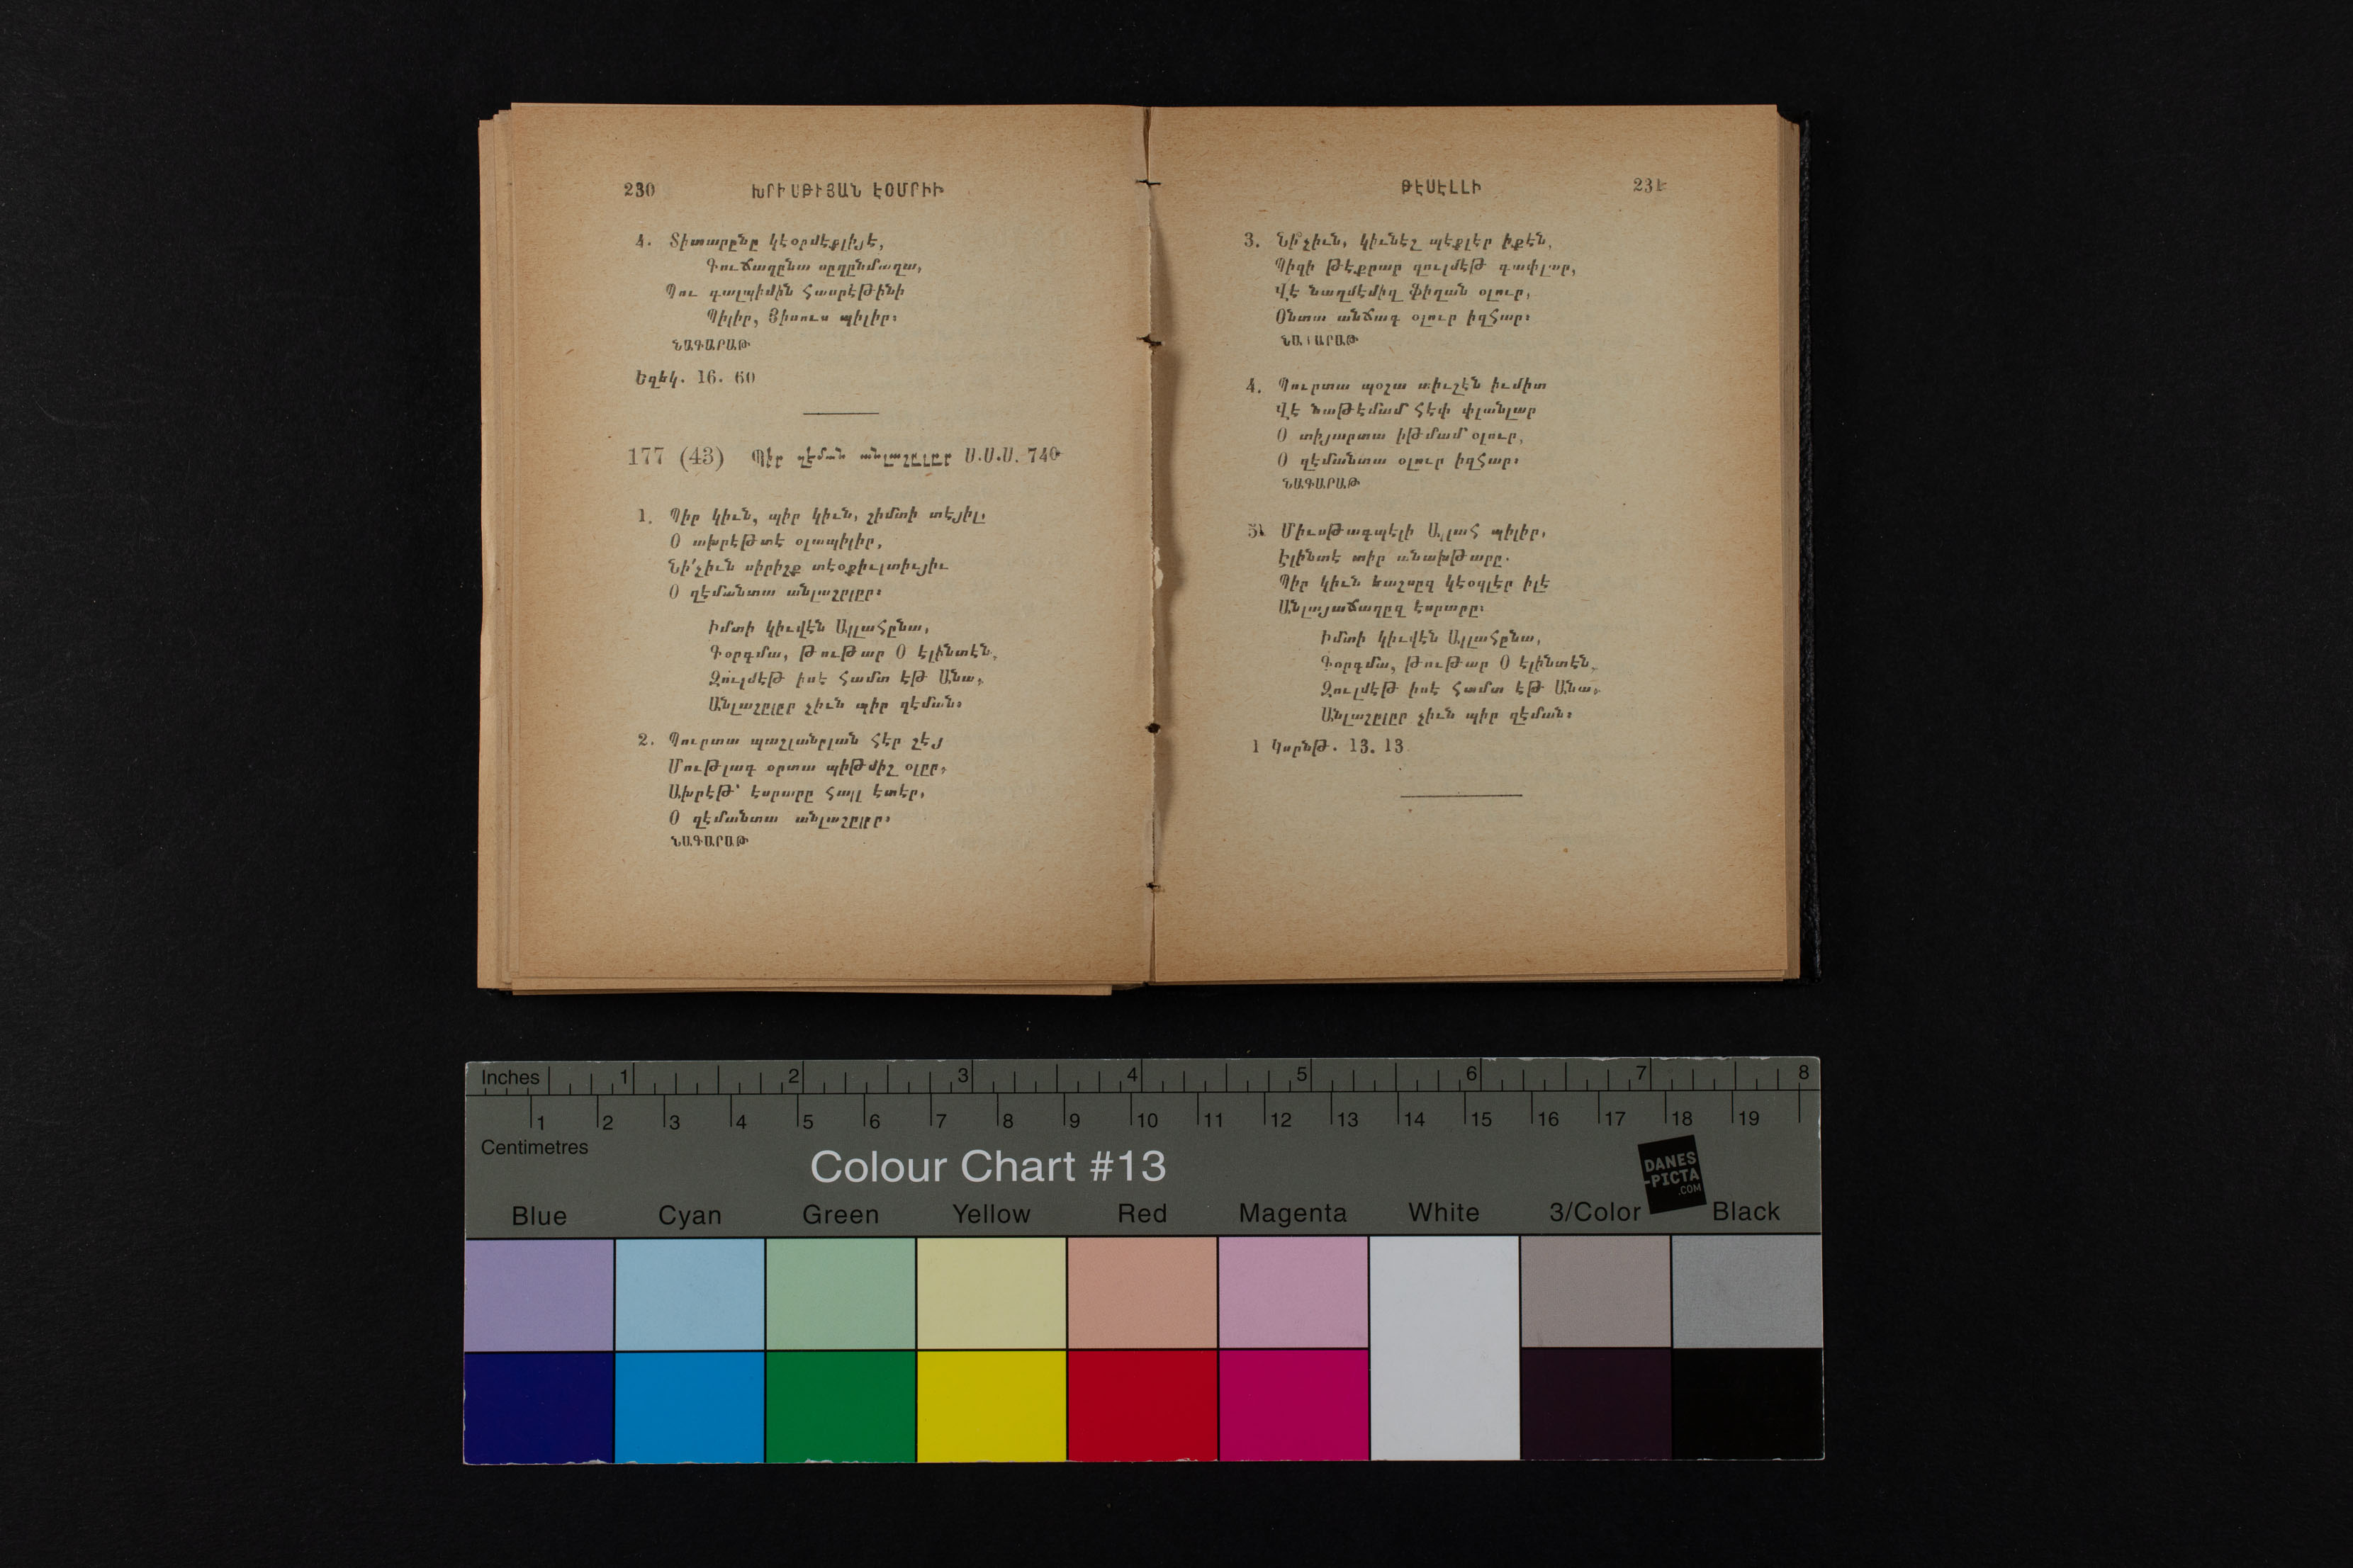 230 ԽՐԻՍԹԻՅԱՆ ԷՕՄՐԻԻ
4. Տիտարընը կէօրմէքլիյէ,
Գուճաղընա սըղընմաղա,
Պու գալպիմին հասրէթինի
Պիլիր, Յիսուս պիլիր։
ՆԱԳԱՐԱԹ
Եզեկ. 16. 60
177 (43) Պիր զէման անլաշըլըր Ս.Ս.Ս. 740
1. Պիր կիւն, պիր կիւն, շիմտի տէյիլ,
Օ ախրէթտէ օլապիլիր,
Նի՛չիւն սիրիշք տէօքիւլտիւյիւ
Օ զէմանտա անլաշըլըր։
Իմտի կիւվէն Ալլահընա,
Գօրգմա, թութար Օ էլինտէն,
Զուլմէթ իսէ համտ էթ Անա,
Անլաշըլըր չիւն պիր զէման։
2. Պուրտա պաշլանըլան հէր շէյ
Մութլագ օրտա պիթմիշ օլըր,
Ախրէթ՝ էսրարը հալլ էտէր,
Օ զէմանտա անլաշըլըր։
ՆԱԳԱՐԱԹ
ԹԷՍԷԼԼԻ 231
3. Նի՞չիւն, կիւնէշ պէքլէր իքէն,
Պիզի թէքրար զուլմէթ գափլար,
Վէ նաղմէմիզ ֆիղան օլուր,
Օնտա անճագ օլուր իզհար։
ՆԱԳԱՐԱԹ
4. Պուրտա պօշա տիւշէն իւմիտ
Վէ նաթէմամ հէփ փլանլար
Օ տիյարտա իթմամ օլուր,
Օ զէմանտա օլուր իզհար։
ՆԱԳԱՐԱԹ
5. Միւսթագպելի Ալլահ պիլիր,
Էլինտէ տիր անախթարը.
Պիր կիւն եաշսըզ կէօզլէր իլէ
Անլայաճաղըզ էսրարը։
Իմտի կիւվէն Ալլահընա,
Գօրգմա, թութար Օ էլինտէն,
Զուլմէթ իսէ համտ էթ Անա,
Անլաշըլըր չիւն պիր զէման։
1 Կորնթ. 13. 13
Inches 1 2 3 4 5 6 7 8
1 2 3 4 5 6 7 8 9 10 11 12 13 14 15 16 17 18 19
Centimetres
Colour Chart #13
DANES
-PICTA
.COM
Blue Cyan Green Yellow Red Magenta White 3/Color Black